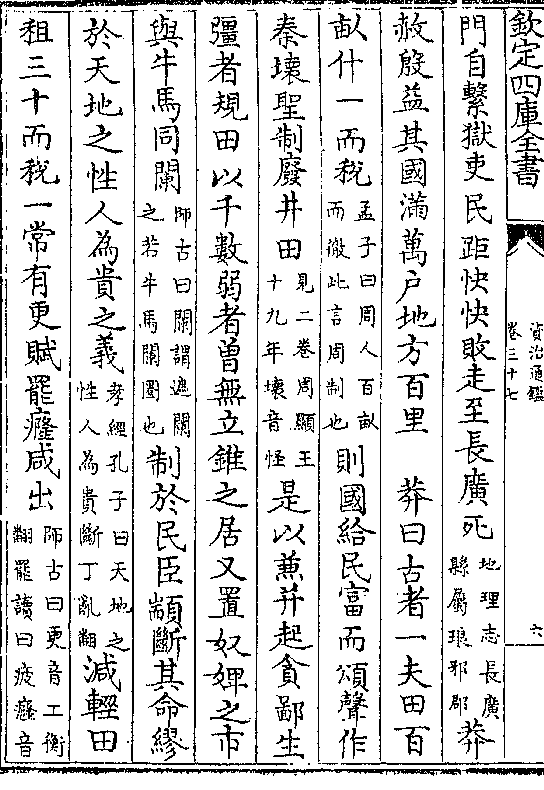 欽定四庫全書
資治通鑑
卷三十七
六
門自繫獄吏民距快快敗走至長廣死
地理志長廣
縣屬琅邪郡
莽
赦殷益其國滿萬户地方百里　莽曰古者一夫田百
畝什一而稅
孟子曰周人百畝
而徹此言周制也
則國給民富而頌聲作
秦壞聖制廢井田
見二卷周顯王
十九年壞音怪
是以兼并起貪鄙生
彊者規田以千數弱者曾無立錐之居又置奴婢之市
與牛馬同闌
師古曰闌謂遮闌
之若牛馬闌圈也
制於民臣顓斷其命繆
於天地之性人為貴之義
孝經孔子曰天地之
性人為貴斷丁亂翻
減輕田
租三十而稅一常有更賦罷癃咸出
師古曰更音工衡
翻罷讀曰疲癃音